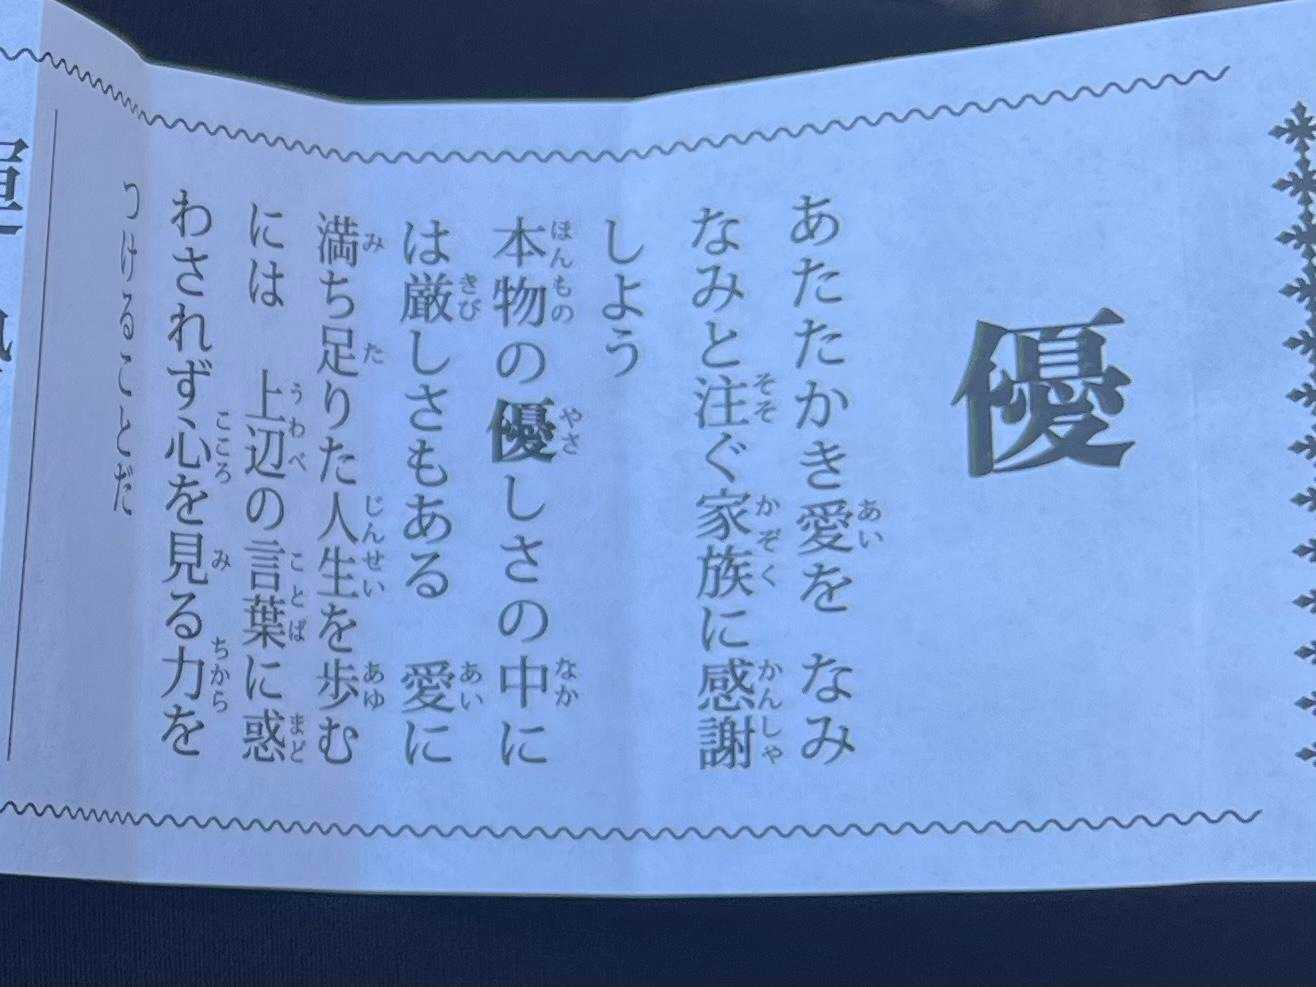 優
あたたかき愛を　なみ
なみと注ぐ家族に感謝
しよう
本物の優しさの中に
は厳しさもある　愛に
満ち足りた人生を歩む
には　上辺の言葉に惑
わされず心を見る力を
つけることだ